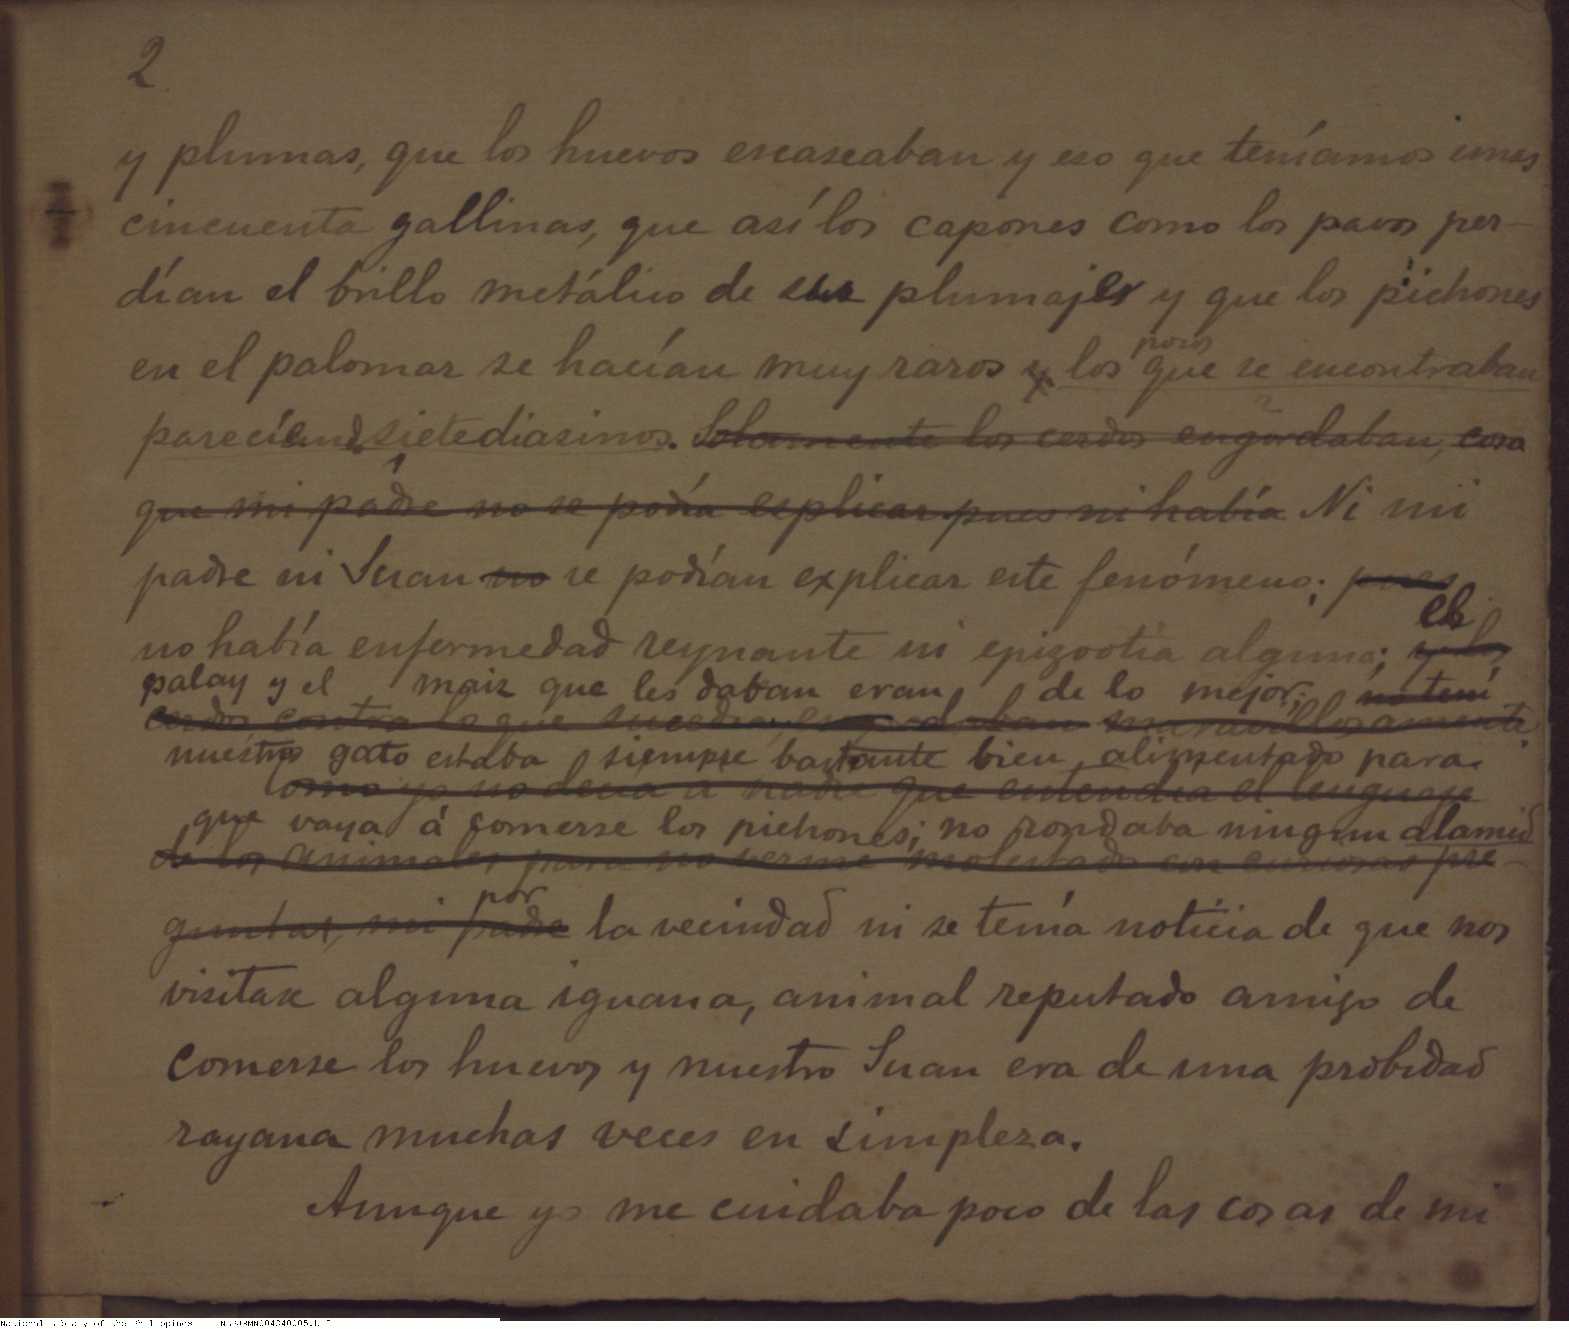 2
y plumas, que los huevos escaseaban y eso que teníamos unas
cincuenta gallinas, que así los capones como los pavos per-
dían el brillo metálico de sus plumajes y que los pichones
en el palomar se hacían muy raros y los pocos que se encontraban
parecían sietediasinos. Solamente los cerdos engordaban, cosa
que mi padre no se podía explicar pues ni había Ni mi
padre ni Juan no se podían explicar este fenómeno; pues
el
no había enfermedad reynante ni epizootia alguna;
palay y el maiz que les daban eran de lo mejor; no tení
nuestro gato estaba siempre bastante bien alimentado para
como yo no decía á nadie que entendía el lenguaje
que vaya á comerse los pichones; no rondaba ningun alamid
de los animales, para no verme molestado con curiosas pre-
por
guntas, mi padre la vecindad ni se tenía noticia de que nos
visitase alguna iguana, animal reputado amigo de
comerse los huevos y nuestro Juan era de una probidad
rayana muchas veces en simpleza.
Aunque yo me cuidaba poco de las cosas de mi
National Library of the Philippines